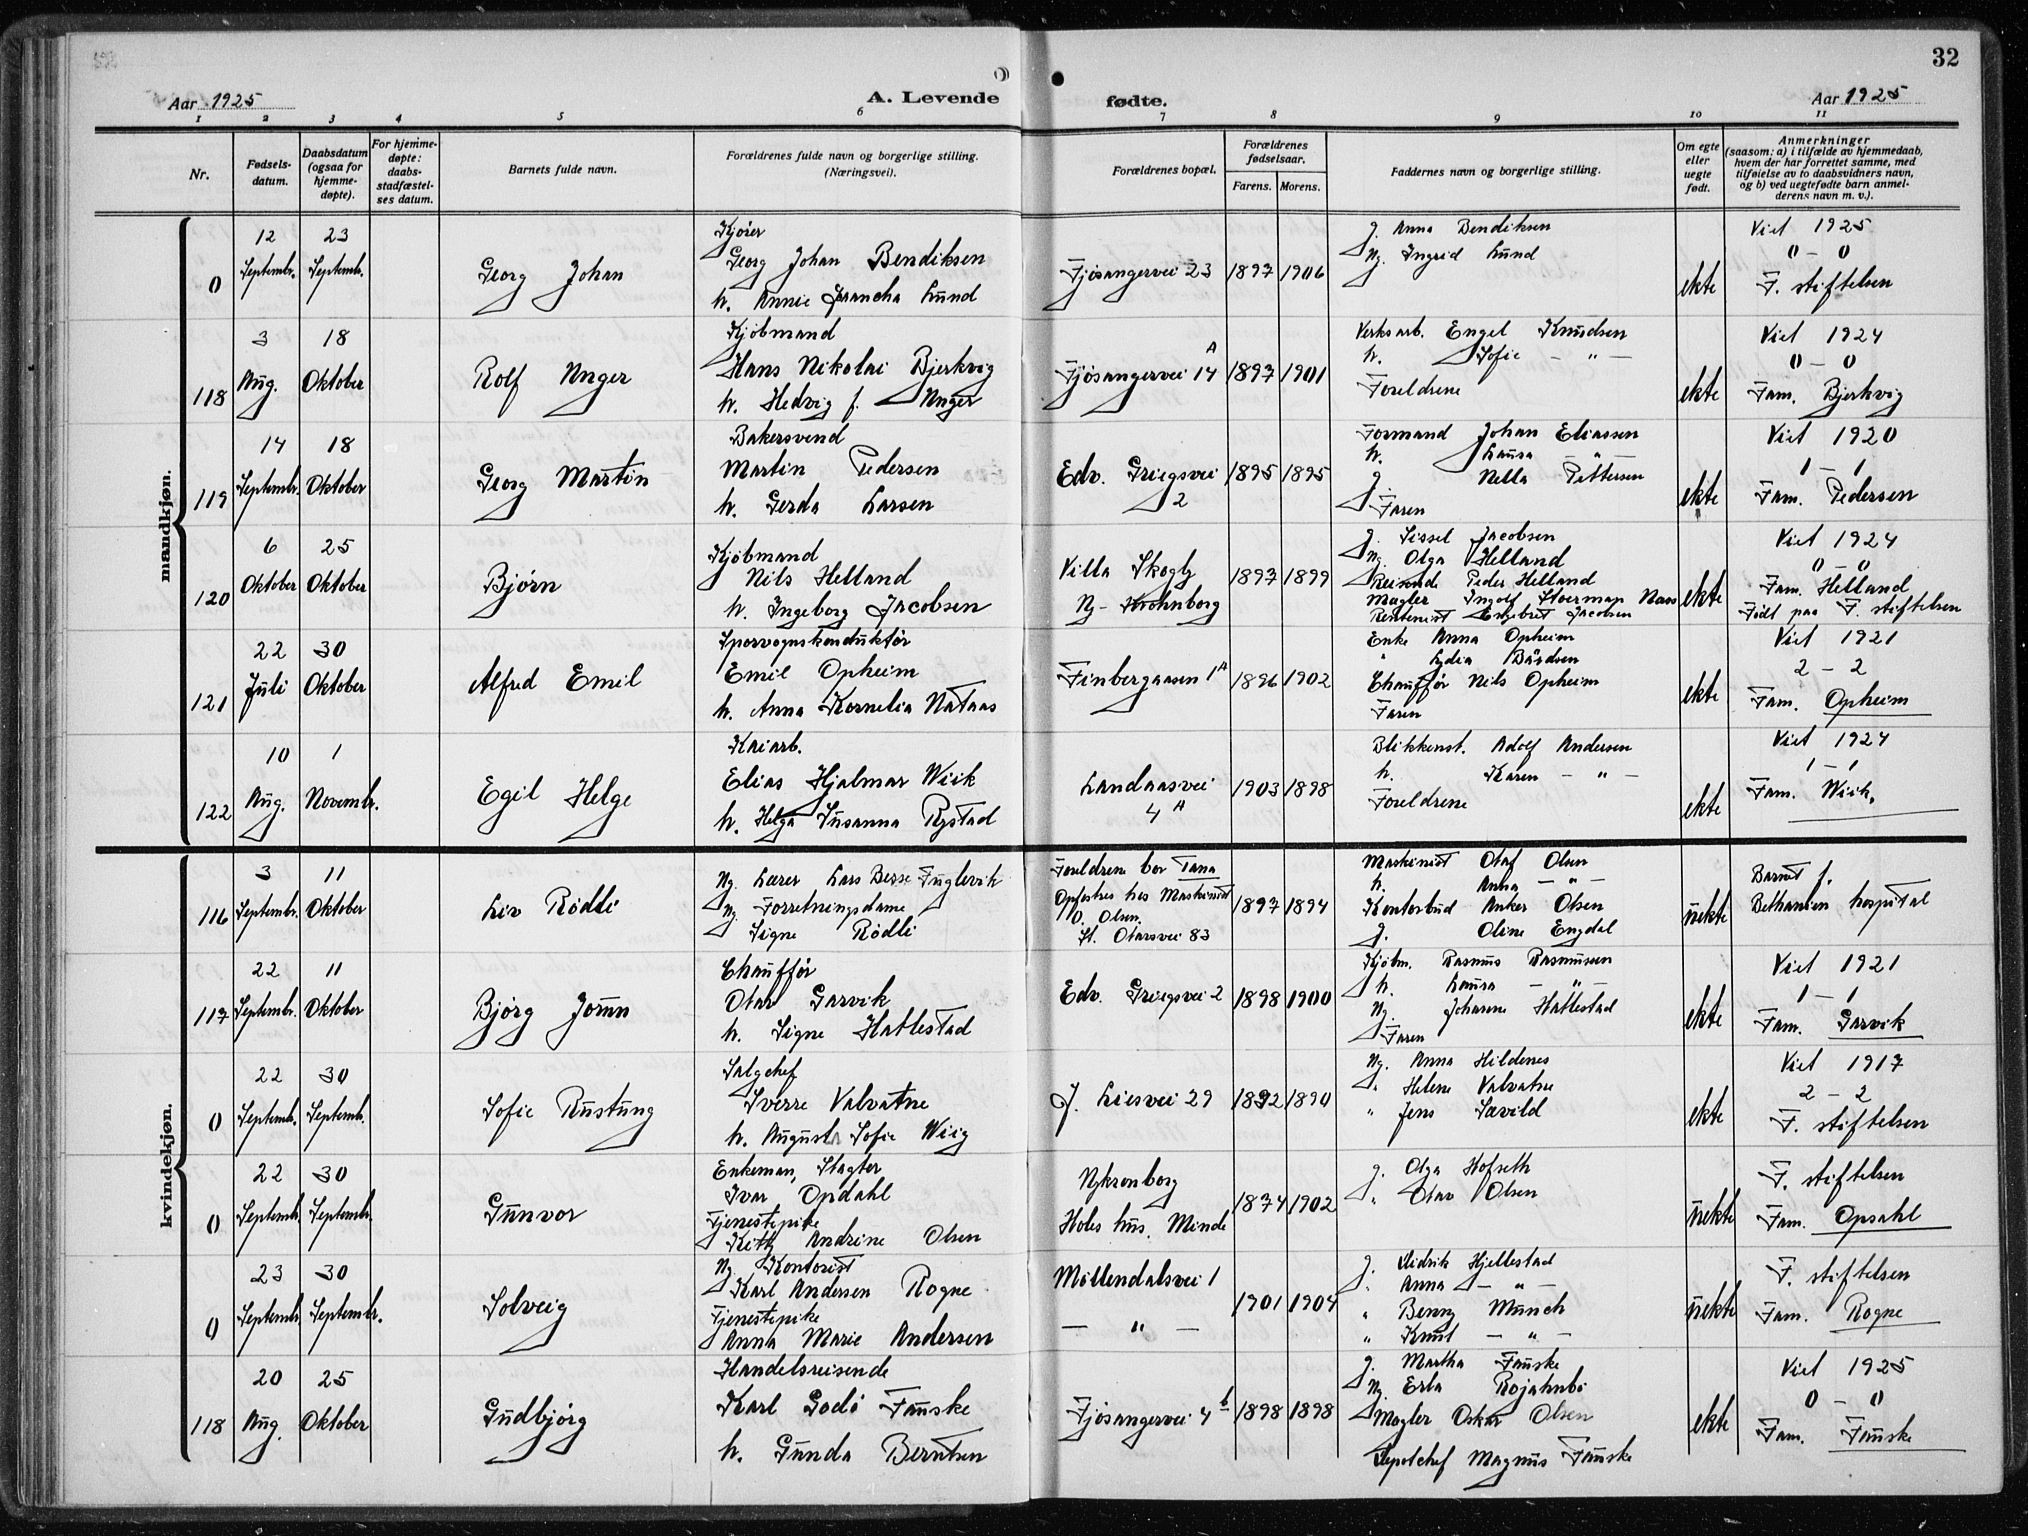 32
Aar 1925
A. Levende
fødte.
Aar 1925
1 2 3 4 5 6 7 8 9 10 11
Nr.
Fødsels-
datum.
Daabsdatum
(ogsaa for
hjemme-
døpte).
For hjemme-
døpte:
daabs-
stadfæstel-
ses datum.
Barnets fulde navn.
Forældrenes fulde navn og borgerlige stilling.
(Næringsvei).
Forældrenes bopæl.
Forældrenes
fødselsaar.
Farens. Morens.
Faddernes navn og borgerlige stilling.
Om egte
eller
uegte
født.
Anmerkninger
(saasom: a) i tilfælde av hjemmedaab,
hvem der har forrettet samme, med
tilføielse av to daabsvidners navn,
og b) ved uegtefødte barn anmel-
derens navn m. v.).
mandkjøn.
0
12
Septembr.
23
Septembr.
Georg Johan
Kjører
Georg Johan Bendiksen
h. Annie Francha Lund
Fjøsangervei 23
1897 1906
g. Anna Bendiksen
Ug. Ingrid Lund
ekte
Viet 1925
0 - 0
F. stiftelsen
118
3
Aug.
18
Oktober
Rolf Unger
Kjøbmand
Hans Nikolai Bjerkvig
h. Hedvig f. Unger
Fjøsangervei 14 A
1897 1901
Verksarb. Engel Knudsen
h. Sofie - " -
Foreldrene
ekte
Viet 1924
0 - 0
Fam. Bjerkvig
119
14
Septembr.
18
Oktober
Georg Martin
Bakersvend
Martin Pedersen
h. Gerda Larsen
Edv. Griegsvei
2
1895 1895
Formand Johan Eliassen
h. Laura - " -
g. Nella Pettersen
Faren
ekte
Viet 1920
1 - 1
Fam. Pedersen
120
6
Oktober
25
Oktober
Bjørn
Kjøbmand
Nils Helland
h. Ingeborg Jacobsen
Villa Skogly
Ny-Krohnborg
1897 1899
g. Sissel Jacobsen
Ug. Olga Helland
Reisende Peder Helland
Mægler Ingolf Stoerman Næss
Rentenist Engebret Jacobsen
ekte
Viet 1924
0 - 0
Fam. Helland
Født paa F. stiftelsen
121
22
Juli
30
Oktober
Alfred Emil
Sporvognskonduktør
Emil Opheim
h. Anna Kornelia Nataas
Finbergaasen 1 A
1896 1902
Enke Anna Opheim
" Lydia Bårdsen
Chauffør Nils Opheim
Faren
ekte
Viet 1921
2 - 2
Fam. Opheim
122
10
Aug.
1
Novembr.
Egil Helge
Kaiarb.
Elias Hjalmar Wiik
h. Helga Susanna Rystad
Landaasvei
4 A
1903 1898
Blikkensl. Adolf Andersen
h. Karen - " -
Foreldrene
ekte
Viet 1924
1 - 1
Fam. Wiik.
kvindekjøn.
116
3
Septembr.
11
Oktober
Liv Rødli
Ug. Lærer Lars Besse Fuglevik
Ug. Forretningsdame
Signe Rødli
Foreldrene bor Tana
Opfostres hos Maskinist
O. Olsen
St. Olavsvei 83
1897 1894
Maskinist Olaf Olsen
h. Anna - " -
Kontorbud Anker Olsen
g. Oline Engdal
uekte
Barnet f.
Bethanien hospital
117
22
Septembr.
11
Oktober
Bjørg Jorun
Chauffør
Olav Garvik
h. Signe Hattestad
Edv. Griegsvei 2
1898 1900
Kjøbm. Rasmus Rasmussen
h. Laura - " -
Ug. Johanne Hattestad
Faren
ekte
Viet 1921
1 - 1
Fam. Garvik
0
22
Septembr.
30
Septembr.
Sofie Rustung
Salgchef
Sverre Valvatne
h. Augusta Sofie Wiig
J. Liesvei 29
1892 1890
Ug. Anna Hildenes
" Helene Valvatne
" Jens Savild
ekte
Viet 1917
2 - 2
F. stiftelsen
0
22
Septembr.
30
Septembr.
Gunvor
Enkeman, Slagter
Ivar Opdahl
Tjenestepike
Kitty Andrine Olsen
Nykronborg
Holes hus. Minde
1874 1902
g. Olga Hofseth
" Olav Olsen
uekte
F. stiftelsen
Fam. Opsahl
0
23
Septembr.
30
Septembr.
Solveig
Ug. Kontorist
Karl Andersen Rogne
Tjenestepike
Anna Marie Andersen
Møllendalsvei 1
- " -
1901 1904
g. Didrik Hjellestad
" Anna - " -
" Benny Munch
" Knut - " -
uekte
F. stiftelsen
Fam. Rogne
118
20
Aug.
25
Oktober
Gudbjørg
Handelsreisende
Karl Godø Fauske
h. Gunda Berntsen
Fjøsangervei 4 b
1898 1898
g. Martha Fauske
Ug. Erla Rojahnbø
Mægler Oskar Olsen
Depotchef Magnus Fauske
ekte
Viet 1925
0 - 0
Fam. Fauske